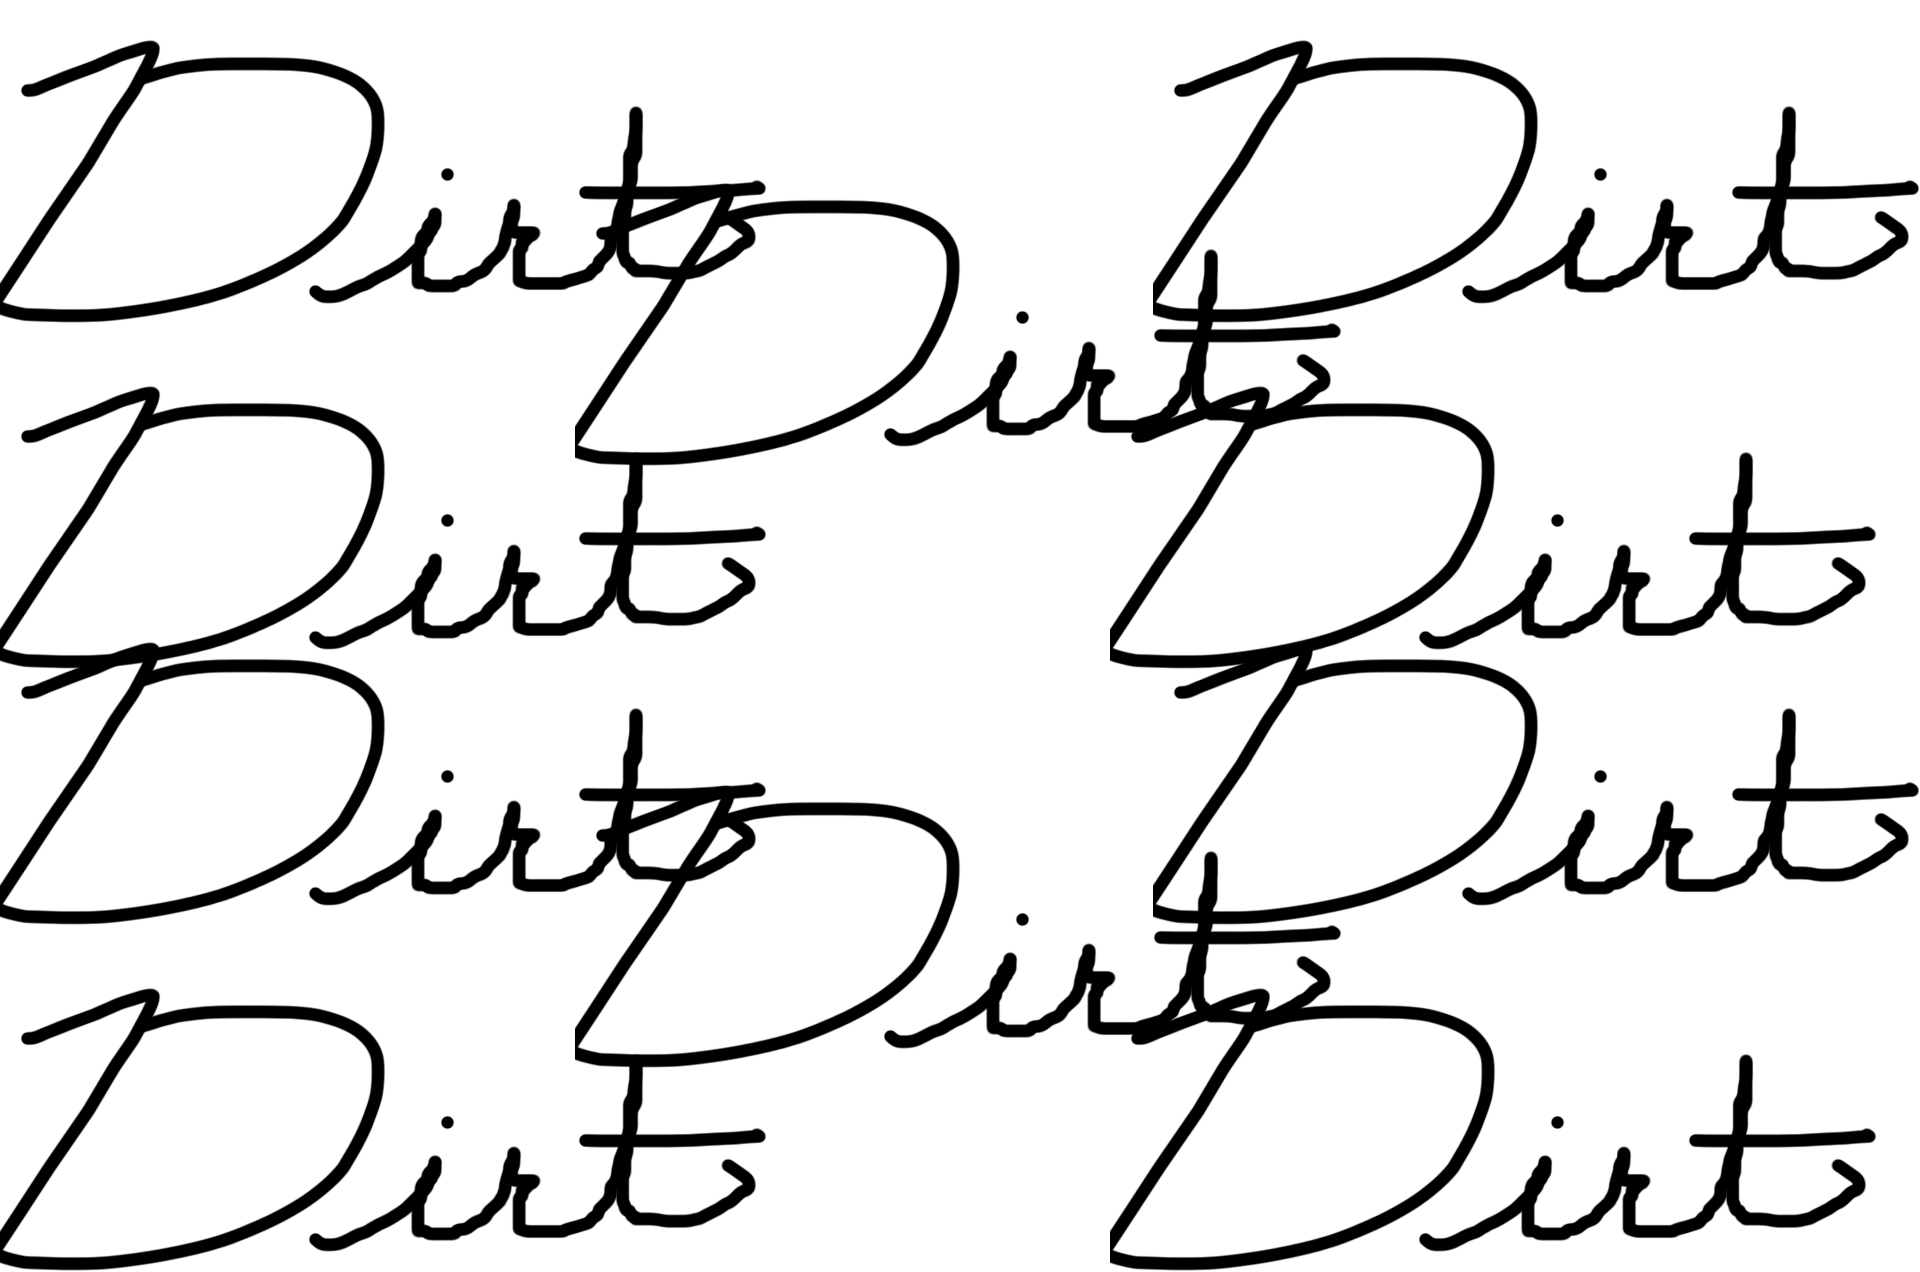 Dirt Dirt
Dirt
Dirt Dirt
Dirt Dirt
Dirt
Dirt Dirt